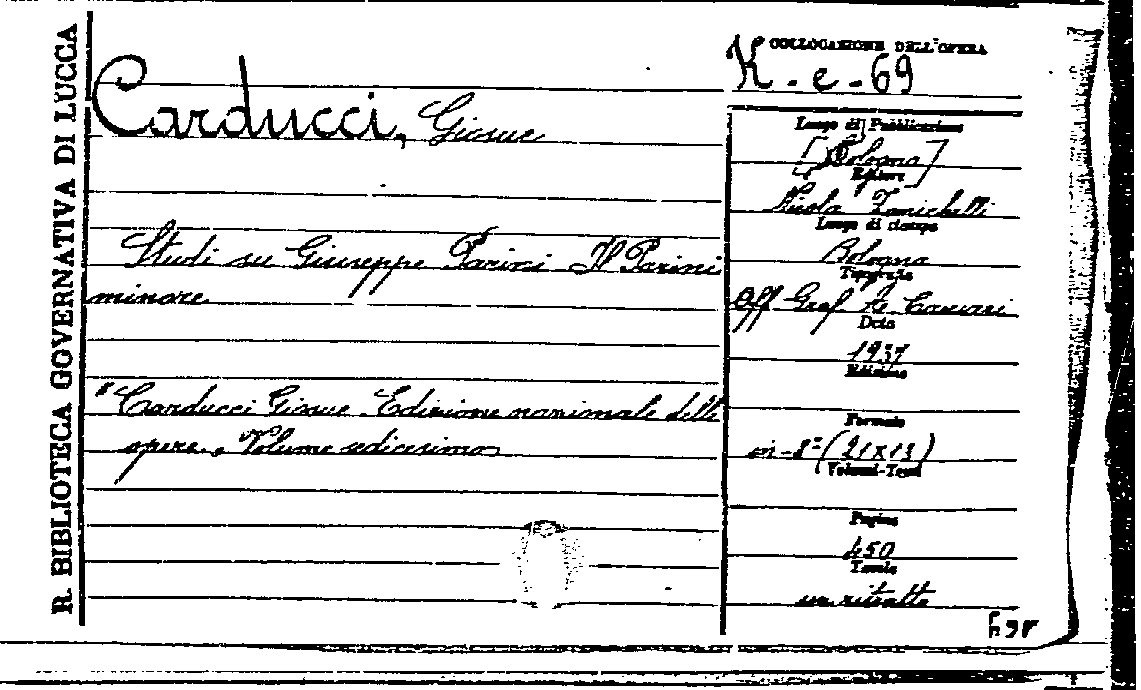 R. BIBLIOTECA GOVERNATIVA DI LUCCA
COLLOCAZIONE DELL'OPERA
K - e - 69
Carducci, Giosue
Studi su Giuseppe Parini Il Parini
minore
"Carducci Giosue Edizione nazionale delle
opere, Volume sedicesimo
Luogo di Pubblicazione
[Bologna]
Editore
Nicola Zanichelli
Luogo di stampa
Bologna
Tipografia
Off Graf. A. Cacciari
Data
1937
Edizione
Formato
in-8° (21x13)
Volumi-Tomi
Pagine
450
Tavole
un ritratto